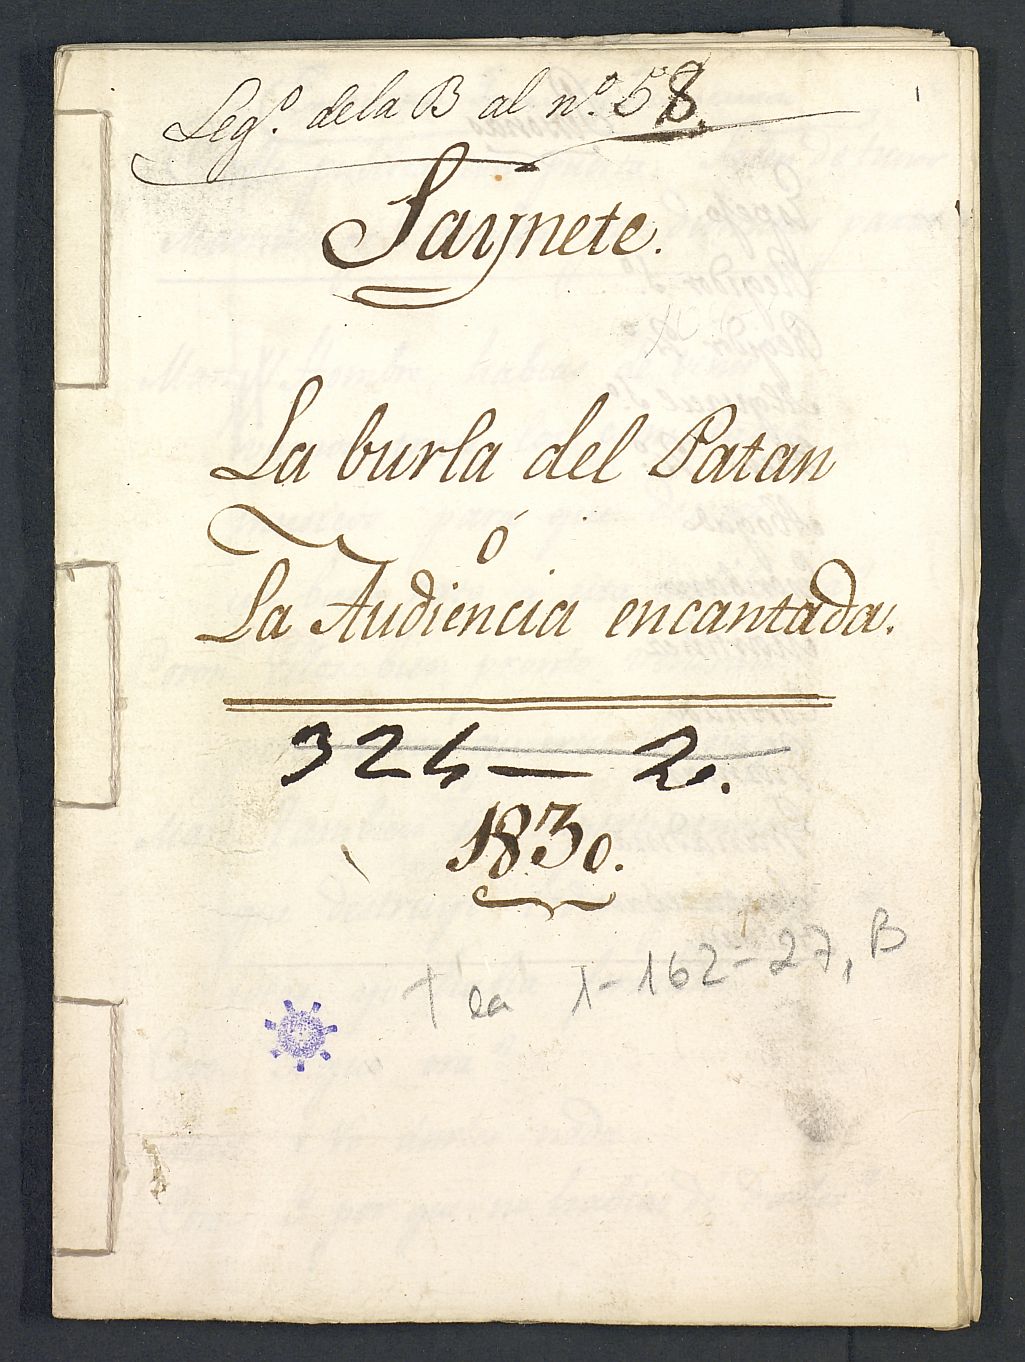 1
Leg.º dela B al n.º 58.
Saynete.
La burla del Patan
ó
La Audiencia encantada.
324 — 2.
1830.
Tea 1-162-27, B